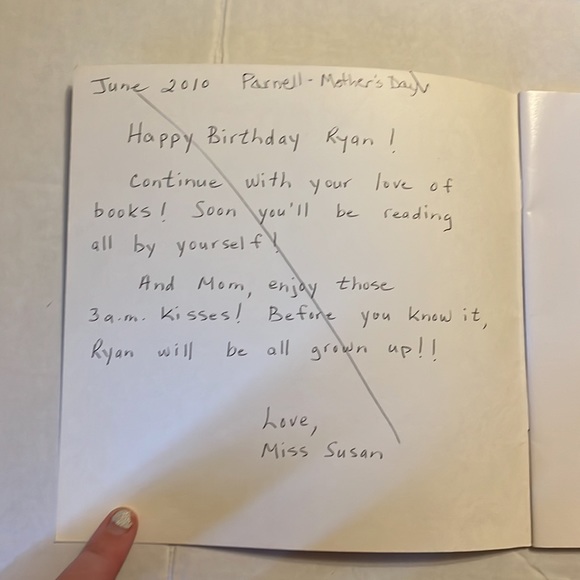 June 2010 Parnell - Mother's Day
Happy Birthday Ryan!
Continue with your love of
books! Soon you'll be reading
all by yourself!
And Mom, enjoy those
3 a.m. kisses! Before you know it,
Ryan will be all grown up!!
Love,
Miss Susan